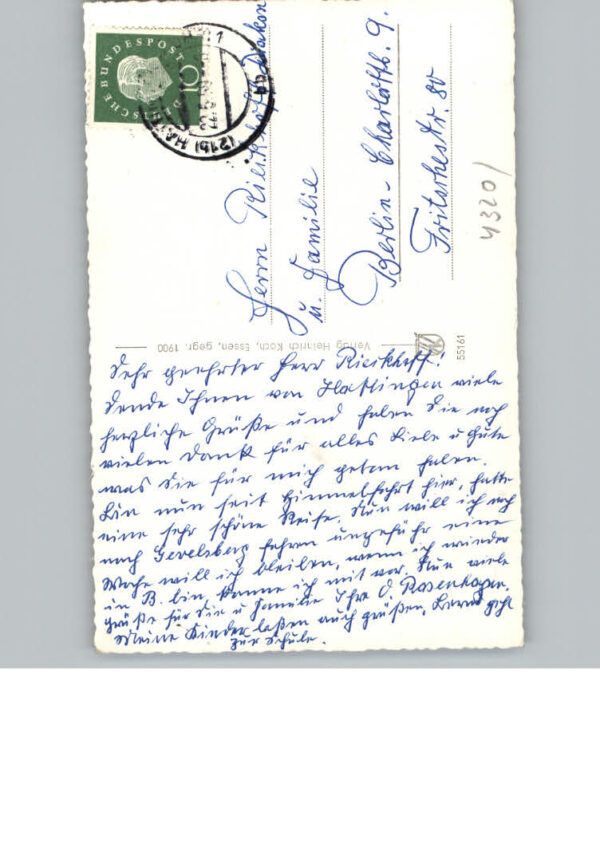 DEUTSCHE BUNDESPOST
10
(21b) HATTI
Herrn Rieckhoff, Diakon
u. Familie
Berlin-Charlottb. 9.
Fritschestr. 80
4320/
Verlag Heinrich Koch, Essen, gegr. 1900
55161
Sehr geehrter Herr Rieckhoff!
Sende Ihnen von Hattingen viele
herzliche Grüße und haben Sie noch
vielen Dank für alles Liebe u Gute
was Sie für mich getan haben.
Bin nun seit Himmelfahrt hier, hatte
eine sehr schöne Reise. Nun will ich noch
nach Gevelsberg fahren ungefähr eine
Woche will ich bleiben, wenn ich wieder
in B. bin, komme ich mit vor. Nun viele
Grüße für Sie u Familie Ihre O. Rosenhagen.
Meine Kinder laßen auch grüßen, Bernd geht
zur Schule.